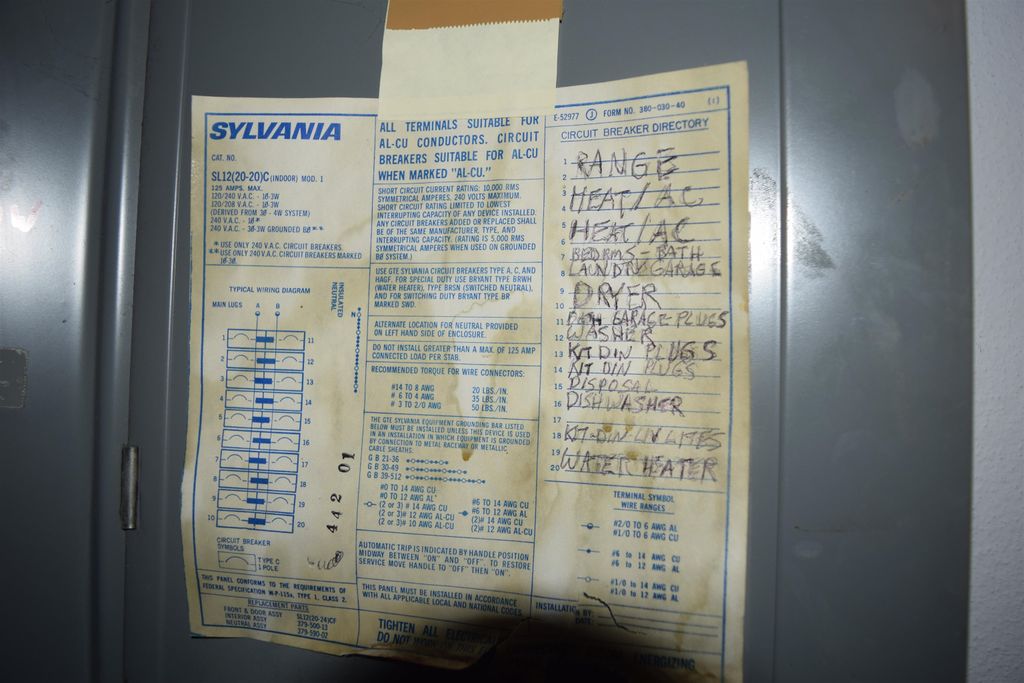 SYLVANIA
CAT. NO.
SL12(20-20)C (INDOOR) MOD. 1
125 AMPS. MAX.
120/240 V.A.C. - 1Ø-3W
120/208 V.A.C. - 1Ø-3W
(DERIVED FROM 3Ø - 4W SYSTEM)
240 V.A.C. - 1Ø*
240 V.A.C. - 3Ø-3W GROUNDED BØ**
* USE ONLY 240 V.A.C. CIRCUIT BREAKERS.
** USE ONLY 240 V.A.C. CIRCUIT BREAKERS MARKED
1Ø-3Ø.
TYPICAL WIRING DIAGRAM
INSULATED
NEUTRAL
MAIN LUGS A B
N
1 11
2 12
3 13
4 14
5 15
6 16
7 17
8 18
9 19
10 20
442 01
CIRCUIT BREAKER
SYMBOLS
TYPE C
1 POLE
THIS PANEL CONFORMS TO THE REQUIREMENTS OF
FEDERAL SPECIFICATION W-P-115a, TYPE 1, CLASS 2.
REPLACEMENT PARTS
FRONT & DOOR ASSY SL12(20-24)CF
INTERIOR ASSY 379-500-13
NEUTRAL ASSY 379-590-02
ALL TERMINALS SUITABLE FOR
AL-CU CONDUCTORS. CIRCUIT
BREAKERS SUITABLE FOR AL-CU
WHEN MARKED "AL-CU."
SHORT CIRCUIT CURRENT RATING: 10,000 RMS
SYMMETRICAL AMPERES, 240 VOLTS MAXIMUM.
SHORT CIRCUIT RATING LIMITED TO LOWEST
INTERRUPTING CAPACITY OF ANY DEVICE INSTALLED.
ANY CIRCUIT BREAKERS ADDED OR REPLACED SHALL
BE OF THE SAME MANUFACTURER, TYPE, AND
INTERRUPTING CAPACITY. (RATING IS 5,000 RMS
SYMMETRICAL AMPERES WHEN USED ON GROUNDED
BØ SYSTEM.)
USE GTE SYLVANIA CIRCUIT BREAKERS TYPE A, C, AND
HAGF. FOR SPECIAL DUTY USE BRYANT TYPE BRWH
(WATER HEATER), TYPE BRSN (SWITCHED NEUTRAL),
AND FOR SWITCHING DUTY BRYANT TYPE BR
MARKED SWD.
ALTERNATE LOCATION FOR NEUTRAL PROVIDED
ON LEFT HAND SIDE OF ENCLOSURE.
DO NOT INSTALL GREATER THAN A MAX. OF 125 AMP
CONNECTED LOAD PER STAB.
RECOMMENDED TORQUE FOR WIRE CONNECTORS:
#14 TO 8 AWG 20 LBS./IN.
# 6 TO 4 AWG 35 LBS./IN.
# 3 TO 2/0 AWG 50 LBS./IN.
THE GTE SYLVANIA EQUIPMENT GROUNDING BAR LISTED
BELOW MUST BE INSTALLED UNLESS THIS DEVICE IS USED
IN AN INSTALLATION IN WHICH EQUIPMENT IS GROUNDED
BY CONNECTION TO METAL RACEWAY OR METALLIC
CABLE SHEATHS:
G B 21-36
G B 30-49
G B 39-512
#0 TO 14 AWG CU
#0 TO 12 AWG AL
(2 or 3) # 14 AWG CU
(2 or 3)# 12 AWG AL-CU
(2 or 3)# 10 AWG AL-CU
#6 TO 14 AWG CU
#6 TO 12 AWG AL
(2)# 14 AWG CU
(2)# 12 AWG AL-CU
AUTOMATIC TRIP IS INDICATED BY HANDLE POSITION
MIDWAY BETWEEN "ON" AND "OFF". TO RESTORE
SERVICE MOVE HANDLE TO "OFF" THEN "ON".
THIS PANEL MUST BE INSTALLED IN ACCORDANCE
WITH ALL APPLICABLE LOCAL AND NATIONAL CODES.
TIGHTEN ALL
DO NOT WORK ON THIS
ENERGIZING
E-52977 J FORM NO. 380-030-40 (1)
CIRCUIT BREAKER DIRECTORY
1 RANGE
2
3 HEAT/AC
4
5 HEAT/AC
6
7 BEDRMS-BATH
8 LAUNDRY GARAGE
9 DRYER
10
11 BATH GARAGE PLUGS
12 WASHER
13 KIT DIN PLUGS
14 KIT DIN PLUGS
15 DISPOSAL
16 DISHWASHER
17
18 KIT-DIN LIV LITES
19 WATER HEATER
20
TERMINAL SYMBOL
WIRE RANGES
#2/0 TO 6 AWG AL
#2/0 TO 6 AWG CU
#6 to 14 AWG CU
#6 to 12 AWG AL
#1/0 to 14 AWG CU
#1/0 to 12 AWG AL
INSTALLATION BY:
DATE: